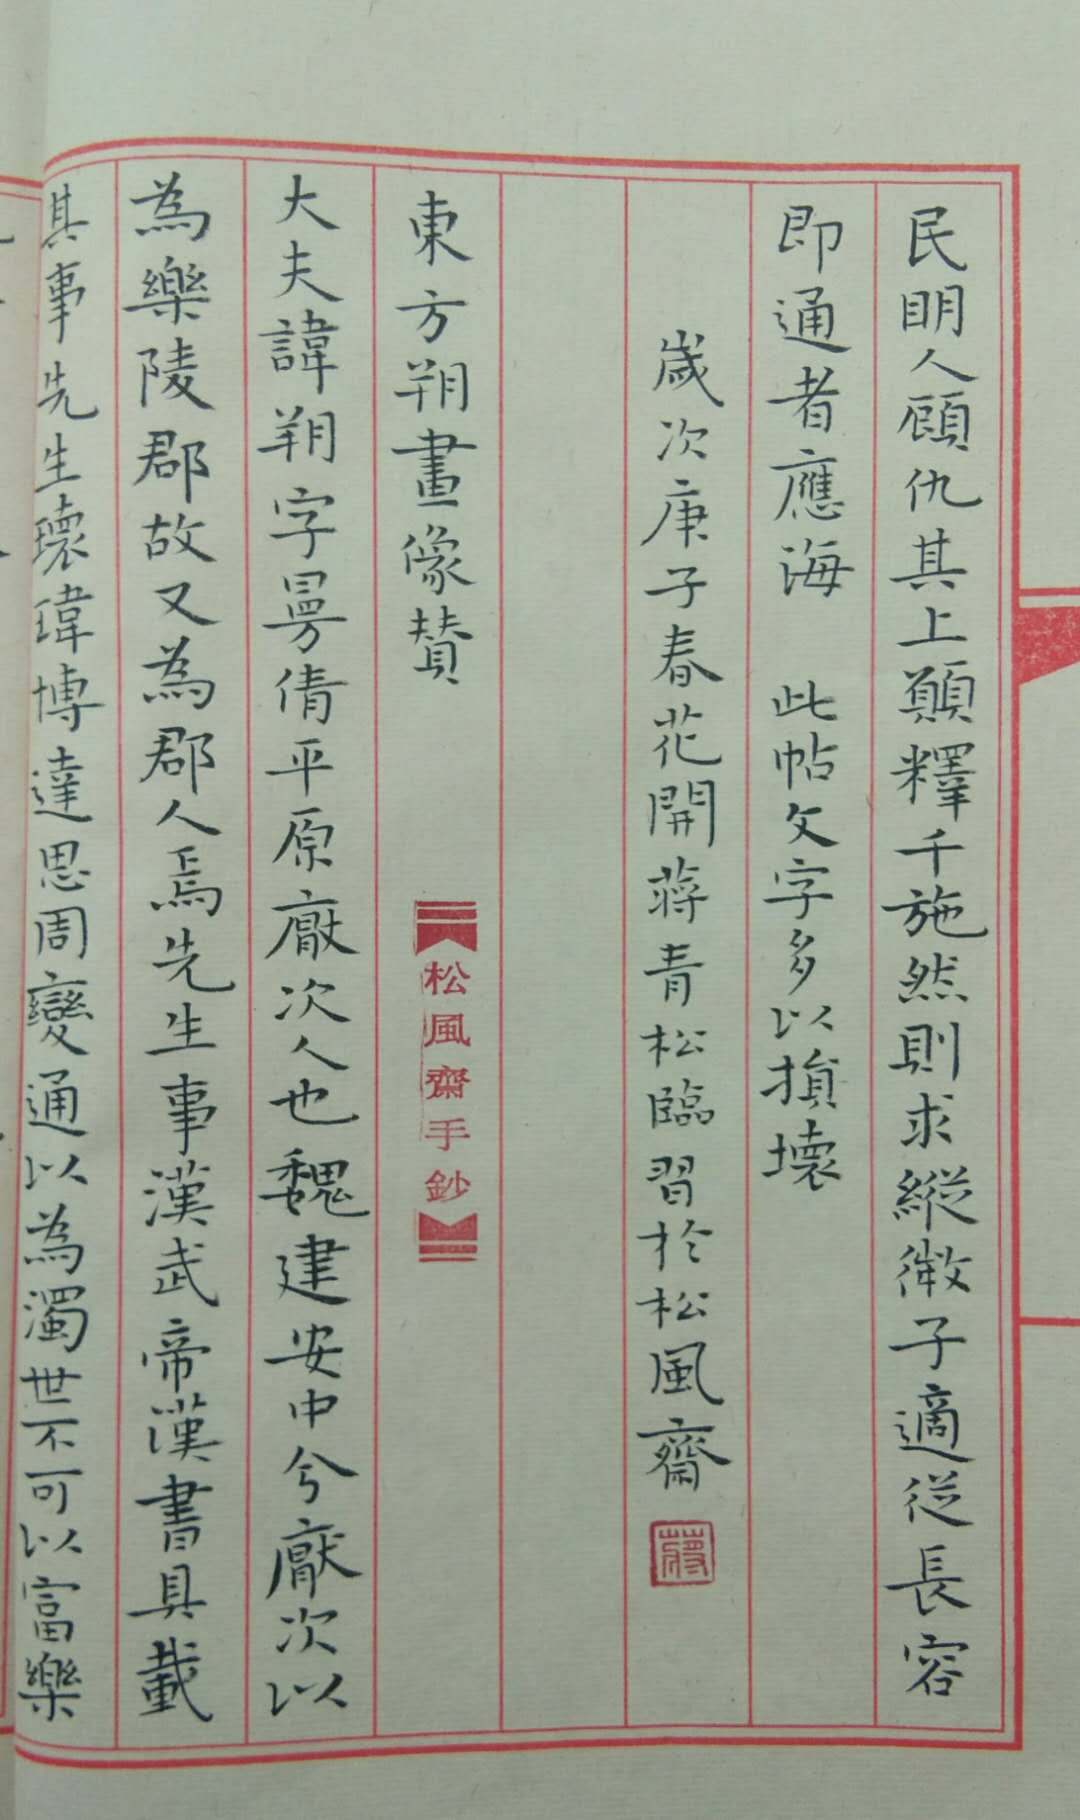 民明人顧仇其上願釋千施然則求縱徵子適從長容
即通者應海 此帖文字多以損壞
歲次庚子春花開蔣青松臨習於松風齋
蔣
東方朔畫像贊
松風齋手鈔
大夫諱朔字曼倩平原厭次人也魏建安中分厭次以
為樂陵郡故又為郡人焉先生事漢武帝漢書具載
其事先生瓌瑋博達思周變通以為濁世不可以富樂